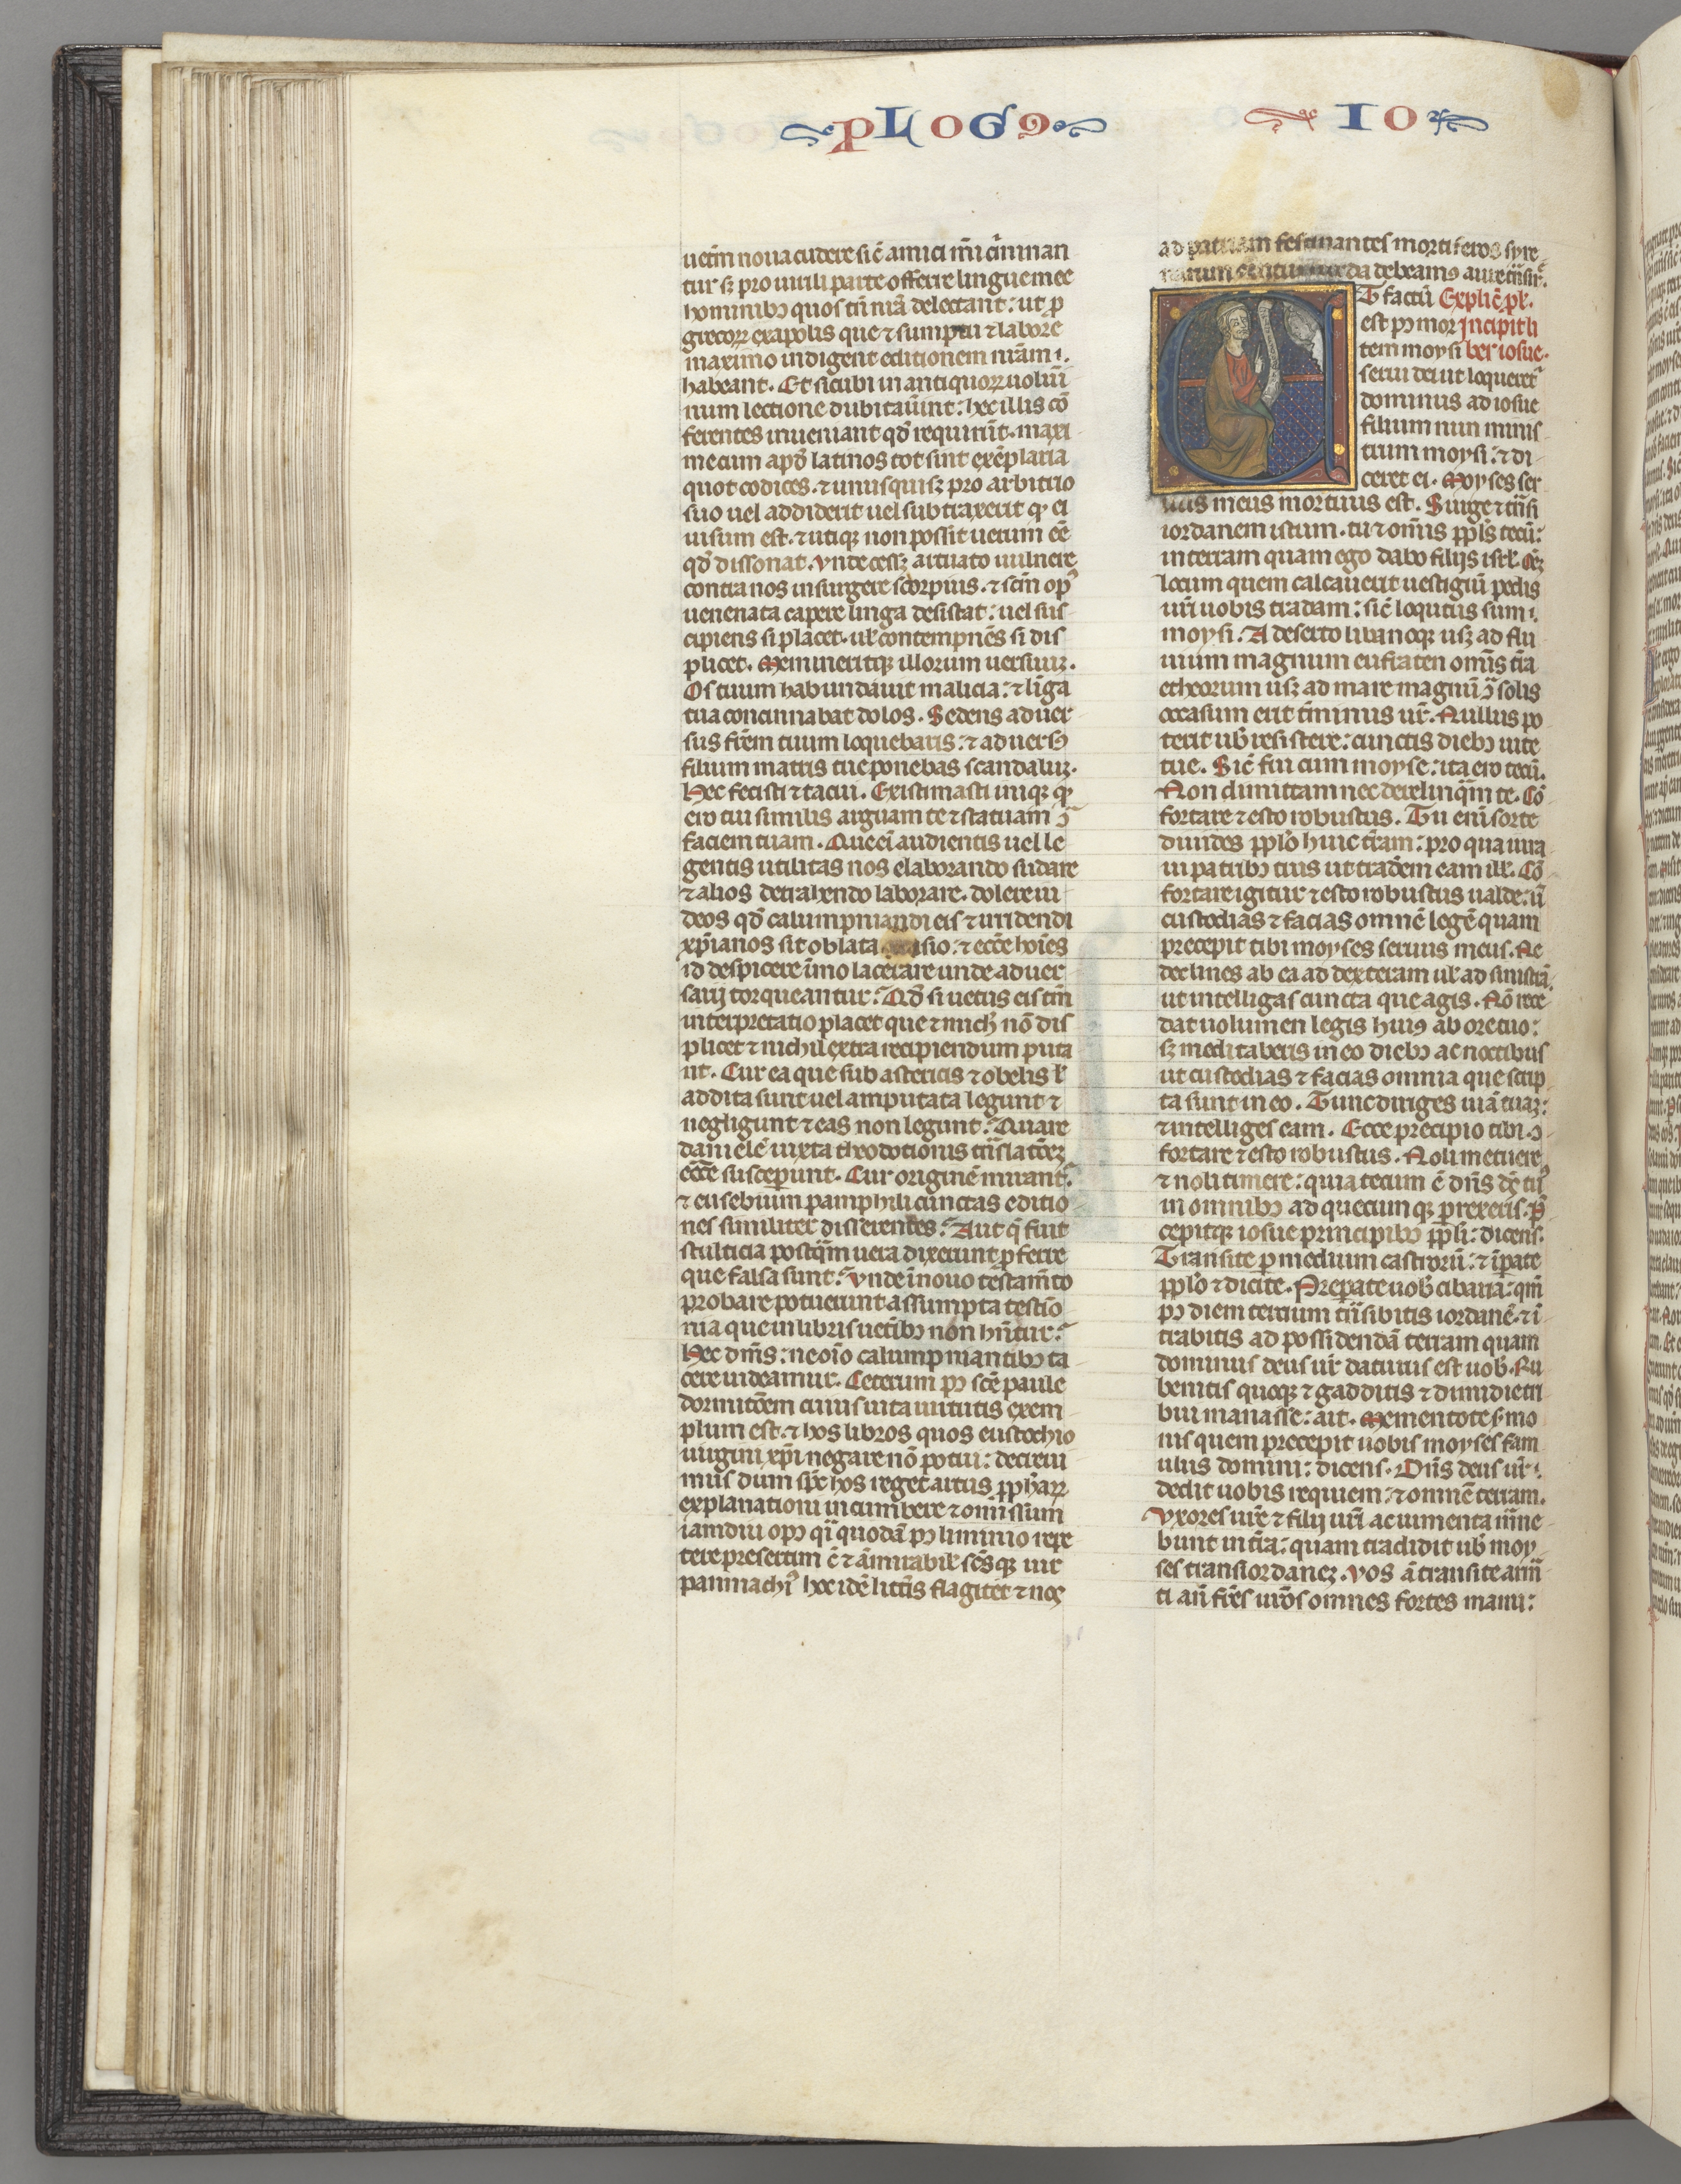 PLOGꝰ IO
uetim noua cudere sic̄ amici m̄i cͥminan
tur sꝫ pro uirili parte offerre lingue mee
hominibꝫ quos tn̄ nr̄a delectant: ut ꝓ
grecoꝝ exapolis que ⁊ sumptu ⁊ labore
maximo indigent editionem nr̄am ı.
habeant. Et sicubi in antiquoꝝ uolūi
num lectione dubitau̅int: hec illis cō
ferentes inueniant qd̄ requirūt. maxi
me cum apd̄ latinos tot sint exēplaria
quot codices. ⁊ unusquisqꝫ pro arbitrio
suo uel addiderit uel subtraxerit qͦ ei
uisum est. ⁊ utiqꝫ non possit uerum ēē
qd̄ dissonat. Vnde cessꝫ arcuato uulnere
contra nos insurgere scorpius. ⁊ scm̄ opꝰ
uenenata capere linga desistat: uel sus
cipiens si placet. ul̄ contempnēs si dis
plicet. Memineritqꝫ illorum uersuuꝫ.
Os tuum habundauit malicia: ⁊ līga
tua concinnabat dolos. Sedens aduer
sus frēm tuum loquebaris: ⁊ aduersꝰ
filium matris tue ponebas scandaluꝫ.
Hec fecisti ⁊ tacui. Existimasti iniqꝫ qͦ
ero tui similis arguam te ⁊ statuam ↄ̄
faciem tuam. Que ēi audientis uel le
gentis utilitas nos elaborando sudare
⁊ alios detrahendo laborare. dolere iu
deos qd̄ calumpniandi eis ⁊ irridendi
xp̄ianos sit oblata sio: ⁊ ecc̄e hoīes
id despicere īmo lacerare unde aduer
sarij torqueantur. Qd̄ si uetus eis tm̄
interpretatio placet que ⁊ mich̄ nō dis
plicet ⁊ nichil extra recipiendum puta
nt. Cur ea que sub astericis ⁊ obelis ł
addita sunt uel amputata legunt ⁊
negligunt ⁊ eas non legunt. Quare
danielē iuxta theodotionis tn̄slatōeꝫ
ecc̄e susceꝑunt. Cur originē mirantᷣ.
⁊ eusebium pamphili cunctas editio
nes similiter disserentes. Aut qͣ fuit
stulticia postqͣm uera dixerunt ꝑferre
que falsa sunt. Vnde ī nouo testam̄to
probare potuerunt assumpta testīo
nia que in libris uetibꝫ non hn̄tur.
Hec dm̄s: ne oīo calumpniantibꝫ ta
cere uideamur. Ceterum pꝰ scē paule
dormitōem cuius uita uirtutis exem
plum est. ⁊ hos libros quos eustochio
uirgini xp̄i negare nō potui: decreui
mus dum spc̄ hos reget artus ꝓphaꝝ
explanationi incumbere ⁊ omissum
iamdiu opꝰ qͣi quodā pꝰ liminio repe
tere presertim c̄ ⁊ āmirabil̄ sc̄sqꝫ uir
panmachiꝰ hoc idē litt̄is flagitet ⁊ nos
ad patriam festinantes mortiferos syre
narum da debeamꝰ aure tn̄sirͤ.
Explic̄ ꝓł.
Incipit li
ber iosue.
ET factū
est pꝰ mor
tem moysi
serui dei ut loqueretᷣ
dominus ad iosue
filium nun minis
trum moysi: ⁊ di
ceret ei. Moyses ser
uus meus mortuus est. Surge ⁊ tn̄si
iordanem istum. tu ⁊ om̄is ꝓpl̄s tecū:
in terram quam ego dabo filijs isrl̄. Oēꝫ
locum quem calcauerit uestigiū pedis
ur̄i uobis tradam: sic̄ loqutus sum ı.
moysi. A deserto libanoqꝫ usqꝫ ad flu
uium magnum eufraten om̄is tr̄a
etheorum usqꝫ ad mare magnū ↄ̄ solis
occasum erit tm̄inus ur̄. Nullus po
terit ub̄ resistere: cunctis diebꝫ uite
tue. Sic̄ fui cum moyse: ita ero tecū.
Non dimittam nec derelinqͣm te. Cō
fortare ⁊ esto robustus. Tu enī sorte
diuides ꝓpl̄o huic tr̄am: pro qua iura
ui patribꝫ tuis ut tradēm eam ill̄. Cō
fortare igitur ⁊ esto robustus ualde: ū
custodias ⁊ facias omnē legē quam
precepit tibi moyses seruus meus. Ne
declines ab ea ad dexteram ul̄ ad sinistrā
ut intelligas cuncta que agis. Nō rece
dat uolumen legis huiꝰ ab ore tuo:
sꝫ meditaberis in eo diebꝫ ac noctibus
ut custodias ⁊ facias omnia que scrip
ta sunt in eo. Tunc diriges uiā tuaꝫ:
⁊ intelliges eam. Ecce precipio tibi ↄ
fortare ⁊ esto robustus. Noli metuere
⁊ noli timere: quia tecum ē dn̄s dē tuꝰ
in omnibꝫ ad quecumqꝫ ꝑrexeris. Pͤ
cepitqꝫ iosue principibꝫ ꝓpl̄i: dicens.
Transite ꝑ medium castrorū: ⁊ īꝑate
ꝓpl̄o ⁊ dicite. Preꝑate uob̄ cibaria: qm̄
pꝰ diem tertium tn̄sibitis iordanē. ⁊ ī
trabitis ad possidendā terram quam
dominus deus ur̄ daturus est uob̄. Ru
benitis quoqꝫ ⁊ gadditis ⁊ dimidie tri
bui manasse: ait. Mementote s̄mo
nis quem precepit uobis moyses fam
ulus domini: dicens. Dn̄s deus ur̄ ı.
dedit uobis requiem: ⁊ omnē terram.
Vxores ur̄e ⁊ filij ur̄i ac iumenta mane
bunt in tr̄a: quam tradidit ub̄ moy
ses transiordaneꝫ. Vos ā transite arm̄
ti an̄ fr̄es ur̄os omnes fortes manu: